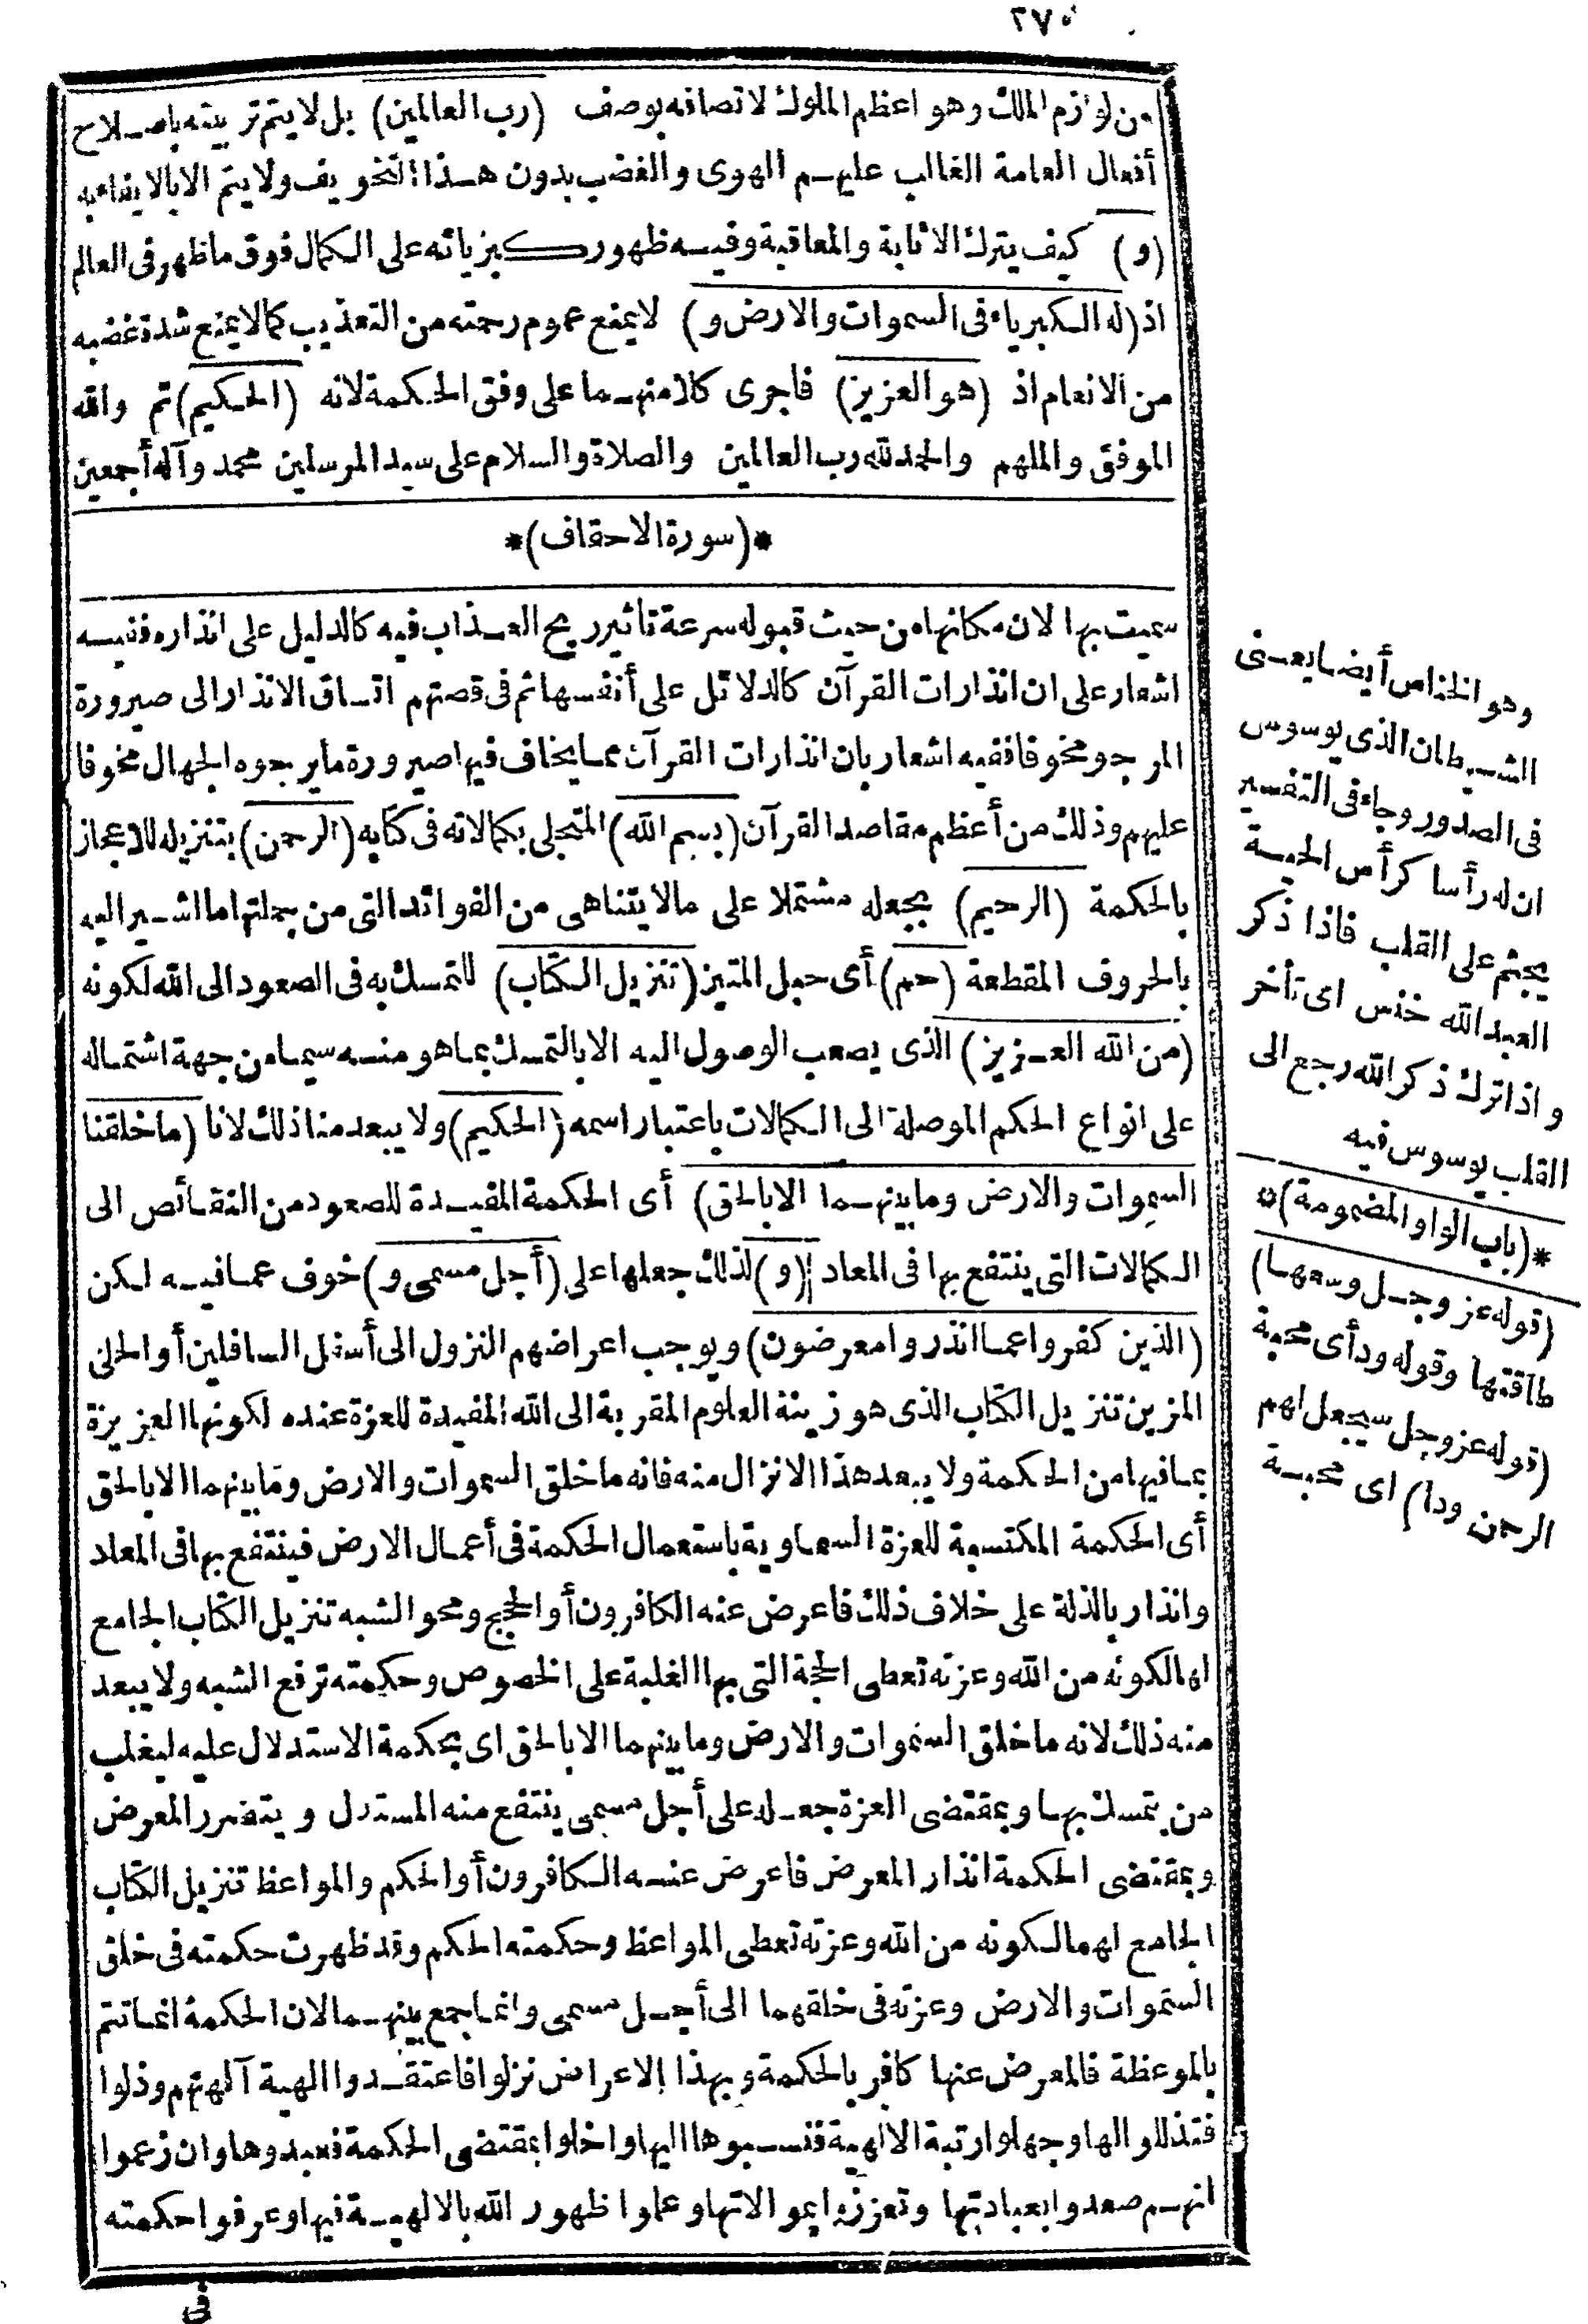 ٢٧٠
من لوازم الملك وهو اعظم الملوك لاتصافه بوصف (رب العالمين) بل لا يتم تربيته باصلاح
أفعال العامة الغالب عليهم الهوى والغضب بدون هذا التخويف ولا يتم الا بالايفاء به
(و) كيف يترك الاثابة والمعاقبة وفيه ظهور كبريائه على الكمال فوق ما ظهر فى العالم
اذ (له الكبرياء فى السموات والارض و) لا يمنع عموم رحمته من التعذيب كما لا يمنع شدة غضبه
من الانعام اذ (هو العزيز) فاجرى كلا منهما على وفق الحكمة لانه (الحكيم) تم والله
الموفق والملهم والحمد لله رب العالمين والصلاة والسلام على سيد المرسلين محمد وآله أجمعين
*(سورة الاحقاف)*
سميت بها لان مكانها من حيث قبوله سرعة تأثير ريح العذاب فيه كالدليل على انذاره ففيه
اشعار على ان انذارات القرآن كالدلائل على أنفسها ثم فى قصتهم اتساق الانذار الى صيرورة
المرجو مخوفا ففيه اشعار بان انذارات القرآن بمما يخاف فيها صيرورة ما يرجوه الجهال مخوفا
عليهم وذلك من أعظم مقاصد القرآن (بسم الله) المتجلى بكمالاته فى كتابه (الرحمن) بتنزيله للاعجاز
بالحكمة (الرحيم) بجعله مشتملا على مالا يتناهى من الفوائد التى من جملتها ما اشير اليه
بالحروف المقطعة (حم) أى حبل المتين (تنزيل الكتاب) للتمسك به فى الصعود الى الله لكونه
(من الله العزيز) الذى يصعب الوصول اليه الا بالتمسك بما هو منه سيما من جهة اشتماله
على انواع الحكم الموصلة الى الكمالات باعتبار اسمه (الحكيم) ولا يبعد منا ذلك لانا (ما خلقنا
السموات والارض وما بينهما الا بالحق) أى الحكمة المفيدة للصعود من النقائص الى
الكمالات التى ينتفع بها فى المعاد (و) لذلك جعلها على (أجل مسمى و) خوف عما فيه لكن
(الذين كفروا عما انذروا معرضون) ويوجب اعراضهم النزول الى أسفل السافلين أو الحلى
المزين تنزيل الكتاب الذى هو زينة العلوم المقربة الى الله المفيدة للعزة عنده لكونها العزيزة
بما فيها من الحكمة ولا يبعد هذا الانزال منه فانه ما خلق السموات والارض وما بينهما الا بالحق
أى الحكمة المكتسبة للعزة السماوية باستعمال الحكمة فى أعمال الارض فينتفع بها فى المعاد
وانذار بالذلة على خلاف ذلك فاعرض عنه الكافرون أو الحجج ومحو الشبه تنزيل الكتاب الجامع
لهما لكونه من الله وعزته تعطى الحجة التى بها الغلبة على الخصوص وحكمته ترفع الشبه ولا يبعد
منه ذلك لانه ما خلق السموات والارض وما بينهما الا بالحق اى بحكمة الاستدلال عليه ليغلب
من يتمسك بها وبمقتضى العزة جعله على أجل مسمى ينتفع منه المستدل ويتضرر المعرض
وبمقتضى الحكمة انذار المعرض فاعرض عنه الكافرون أو الحكم والمواعظ تنزيل الكتاب
الجامع لهما لكونه من الله وعزته تعطى المواعظ وحكمته الحكم وقد ظهرت حكمته فى خلق
السموات والارض وعزته فى خلقهما الى أجل مسمى وانما جمع بينهما لان الحكمة انما تتم
بالموعظة فالمعرض عنها كافر بالحكمة وبهذا الاعراض نزلوا فاعتقدوا الهية آلهتهم وذلوا
فتذللوا لها وجهلوا رتبة الالهية فنسبوها اليها واخلوا بمقتضى الحكمة فعبدوها وان زعموا
انهم صعدوا بعبادتها وتعززوا بموالاتها وعملوا ظهور الله بالالهية فيها وعرفوا حكمته
فى
وهو الخناس أيضا يعنى
الشيطان الذى يوسوس
فى الصدور وجاء فى التفسير
ان له رأسا كرأس الحية
يجثم على القلب فاذا ذكر
العبد الله خنس اى تأخر
واذا ترك ذكر الله رجع الى
القلب يوسوس فيه
*(باب الواو المضمومة)*
(قوله عز وجل وسعها)
طاقتها وقوله ودأى محبة
(قوله عز وجل سيجعل لهم
الرحمن ودا) اى محبة